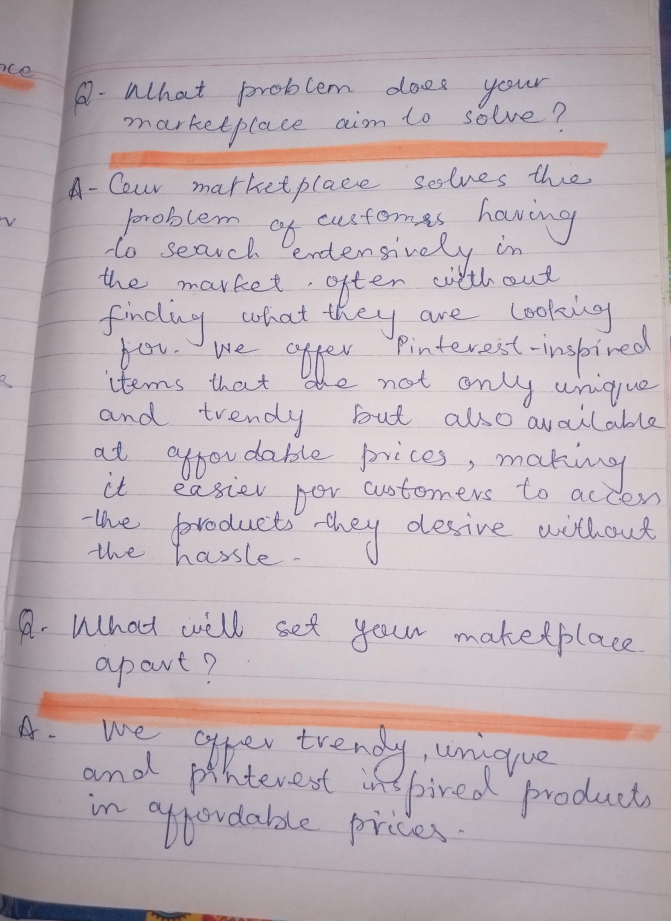 nce
Q- What problem does your
marketplace aim to solve?
A- Our marketplace solves the
problem of customers having
to search entensively in
the market. often without
finding what they are looking
for. We offer Pinterest-inspired
items that are not only unique
and trendy but also available
at affordable prices, making
it easier for customers to access
the products they desire without
the hassle-
Q. What will set your maketplace
apart?
A- We offer trendy, unique
and pinterest inspired products
in affordable prices.